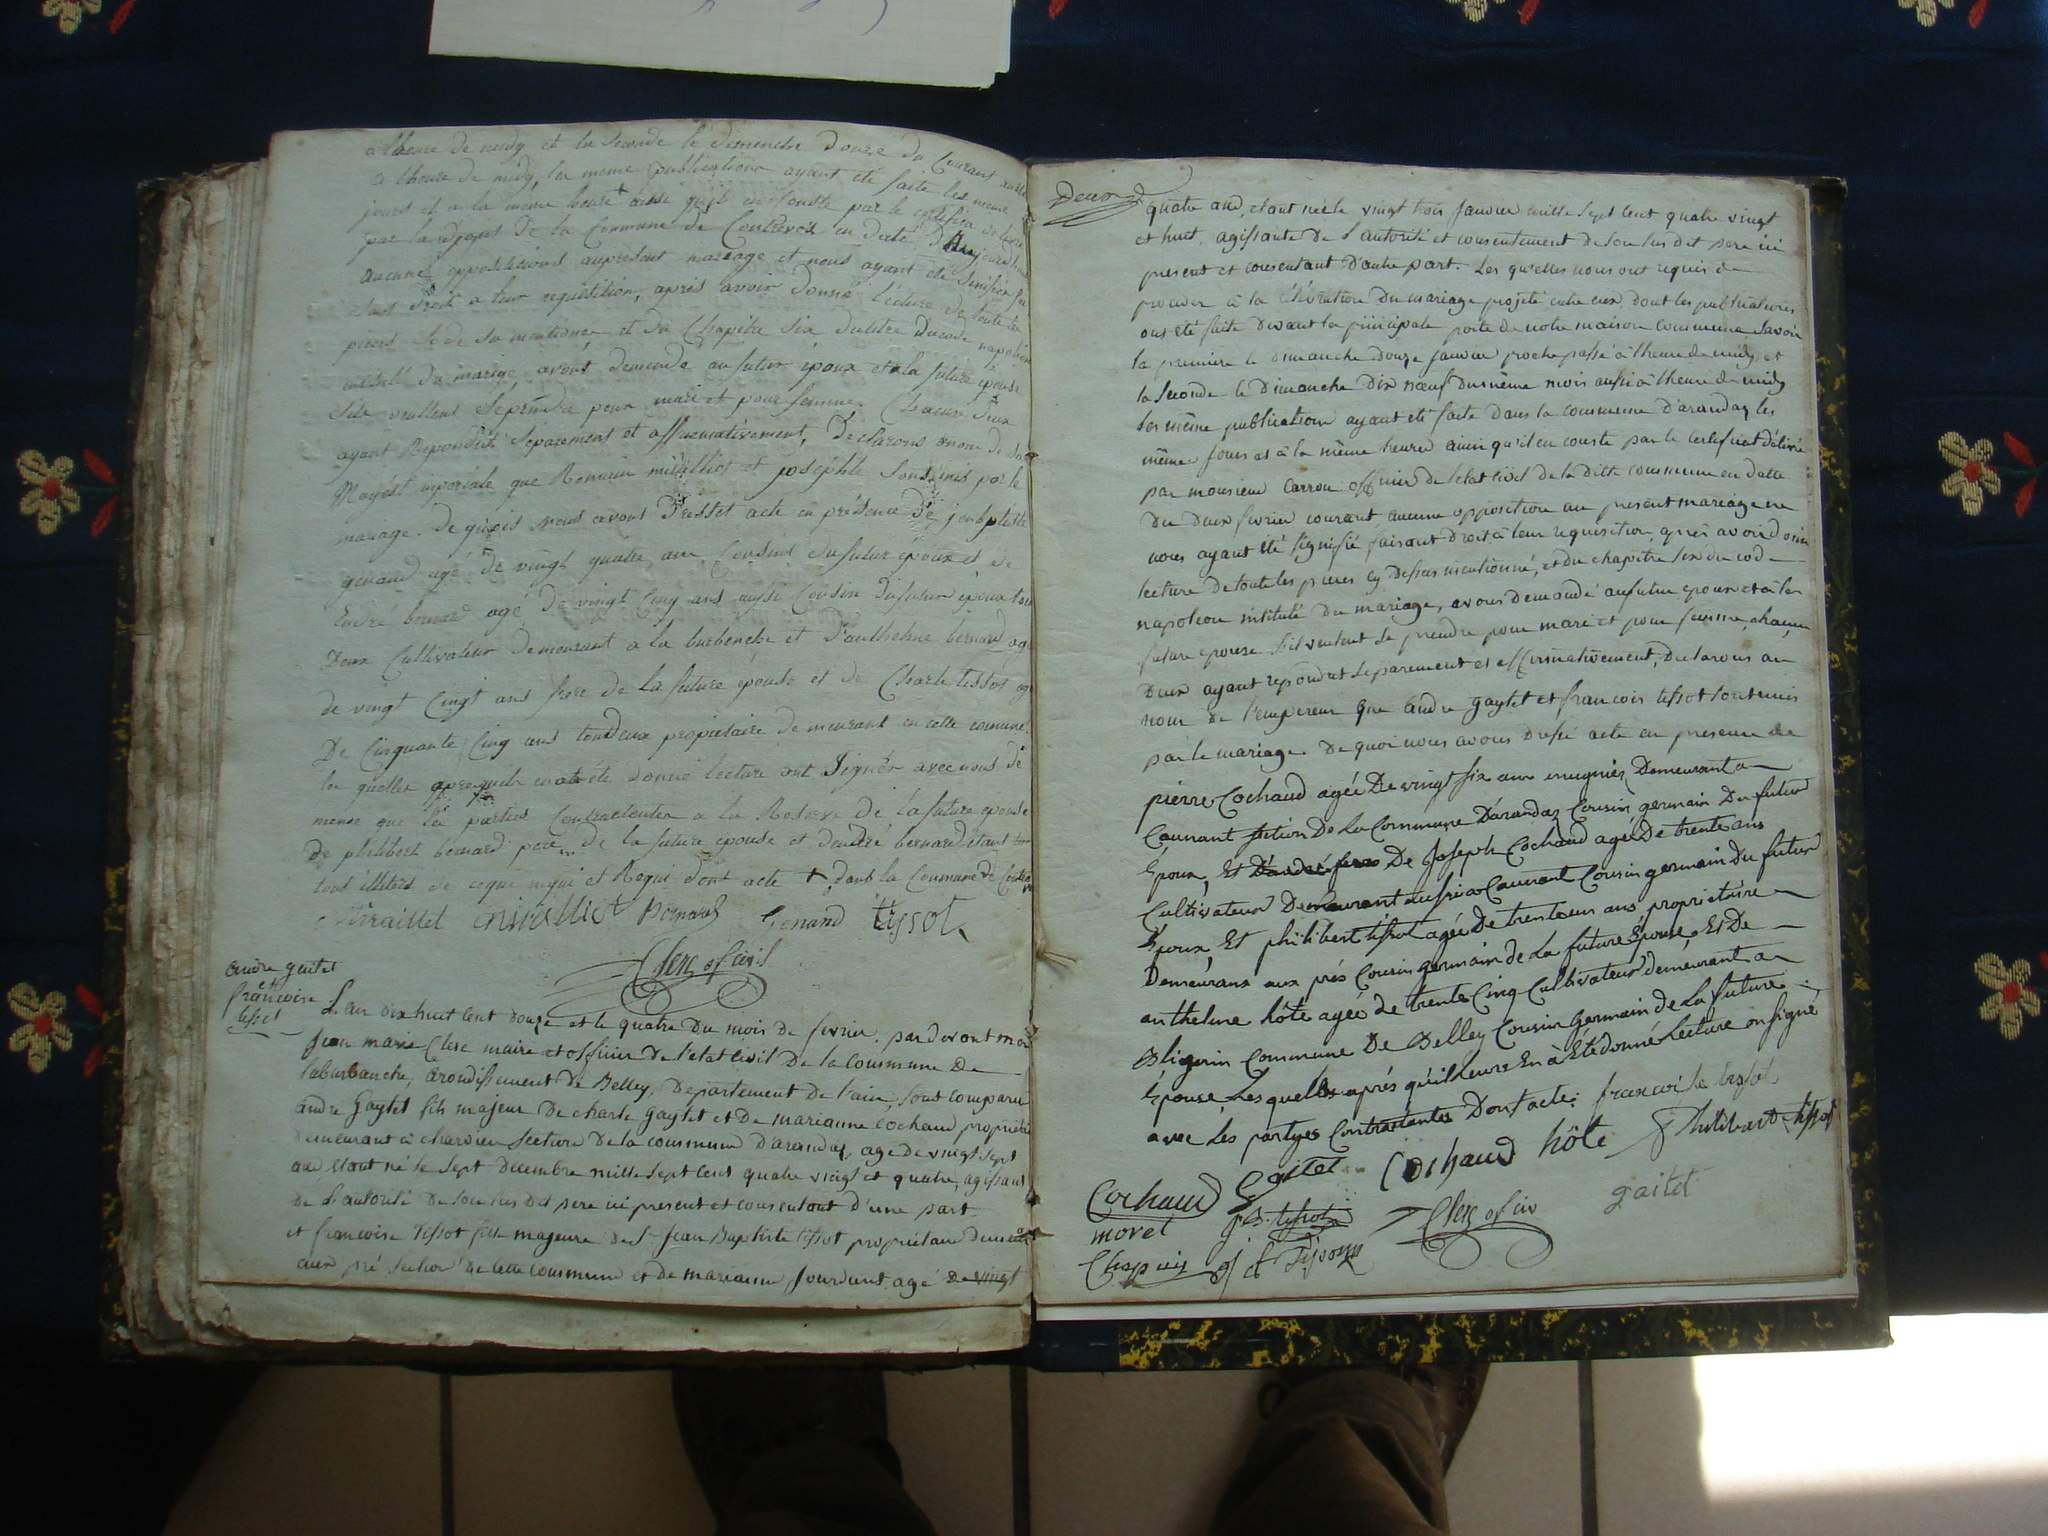 a lheure de midy et la seconde le demenche douze du Courant aussi
a lheure de midy, les meme publications ayant été faite les meme
jours et a la meme heure ainsi qu'il en Conste par le certificat
par la de la Commune de Contrevoz en date D'aujourdhui
aucune oppositions aupresent mariage et nous ayant été Sinifiée
droit a leur requisition, apres avoir donné lecture de toute les
pieces et du Chapitre Six du titre du code napoleon
intitulé du mariage, avons demendé au futur époux et a la future épouse
sils veullent se prendre pour mari et pour femme. Chacun deux
ayant Repondut Separement et affirmativement, Declarons
Majesté imperiale que Romain et josephte Sont unis par le
mariage. De quois nous avons Dresset acte en présence De jenbptiste
genand agé de vingt quatre ans Cousint du futur époux et de
Endré bernard agé De vingt Cinq ans aussi Cousin du futur époux tou
Deux Cultivateur demeurant a la burbenche et D'anthelme bernard ag
de vingt Cinqt ans frere de la future épouse et de Charle tissot ag
De Cinquante Cinq ans tousdeux propietaire demeurant en cette comune
les quelles apres quil en at été donné lecture ont Signér avec nous de
meme que les parties Contractentes a la Reserve de la future épouse
De philibert bernard pere de la future epouse et dendré bernard étant
tous illitérés de ceque enquis et Requi dont acte + dant la Commune de
Miraillet miralliet Bernard Genand tissot
Clerc of civil
andre gaitet
et
françoise
tissot
L'an dix huit cent douze et le quatre du mois de fevrier. pardevant moi
Jean marie Clerc maire et officier de l'etat civil de la Commune De
laburbanche, arondissement de Belley, Departement de l'ain, sont comparu
andre Gaytet fils majeur de charle gaytet et de marianne cochaud proprietai
demeurant à charvieu section de la commune d'arandas, agé de vingt sept
ans, étant né le sept decembre mille sept cent quatre vingt et quatre, agissant
de L'autorité de son sus dit pere ici present et consentant d'une part
et francoise Tissot fille majeure de Sr Jean Baptiste tissot propriétaire demeurant
aux pré section de cette commune et de marianne Jourdant agé de vingt
Deux
quatre ans, etant née le vingt trois Janvier mille sept cent quatre vingt
et huit. agissante de L'autorité et consentement de son sus dit pere ici
present et consentant D'autre part. Les qu'elles nous ont requis de
proceder à la Célébration du mariage projeté entre eux, dont les publications
ont été faite devant la principale porte de notre maison commune Savoir
la premiere le dimanche douze Janvier proche passé à l'heure de midy et
la Seconde le Dimanche Dix nœuf du même mois aussi à l'heure de midy
les même publication ayant été faite dans la commune d'arandas les
même jours et à la même heures ainsi qu'il en conste par le certificat délivré
par monsieur carron officier de l'etat civil de la ditte commune en datte
du deux fevrier courant, aucune opposition au present mariage ne
nous ayant été signifié, faisant droit à leur requisition, après avoir donné
lecture de toute les pieces cy dessus mentionné, et du chapitre six du code
napoleon intitulé du mariage, avons demandé au futur epoux et à la
future epouse s'il veulent se prendre pour mari et pour femme, chacun
Deux ayant repondut separement et affirmativement, declarons au
nom de l'empereur que andre gaytet et françois tissot sont unis
par le mariage. De quoi nous avons dressé acte en presence de
pierre Cochaud agée De vingt six ans meugnier Demeurant a
Caunant section De La Commune D'arandas Cousin germain Du futur
Époux, Et De Joseph Cochaud agée De trente ans
Cultivateur Demeurant aussi a Caunant Cousin germain Du futur
Époux, Et philibert tissot agée De trente un ans proprietaire
Demeurant aux prés Cousin germain de La future Épouse, Et De
anthelme hôte agée de trente Cinq Cultivateur demeurant a
Bligerin Commune De Belley Cousin germain de La future
Épouse, Les quelles après qu'il Leurs En à Eté donné Lecture on signé
avec Les partyes Contractantes Dont acte: francoise tissot
Cochaud Gaitet Cochaud hôte Philibert tissot
morel J B. tissot Clerc of civ gaitet
Chapuis